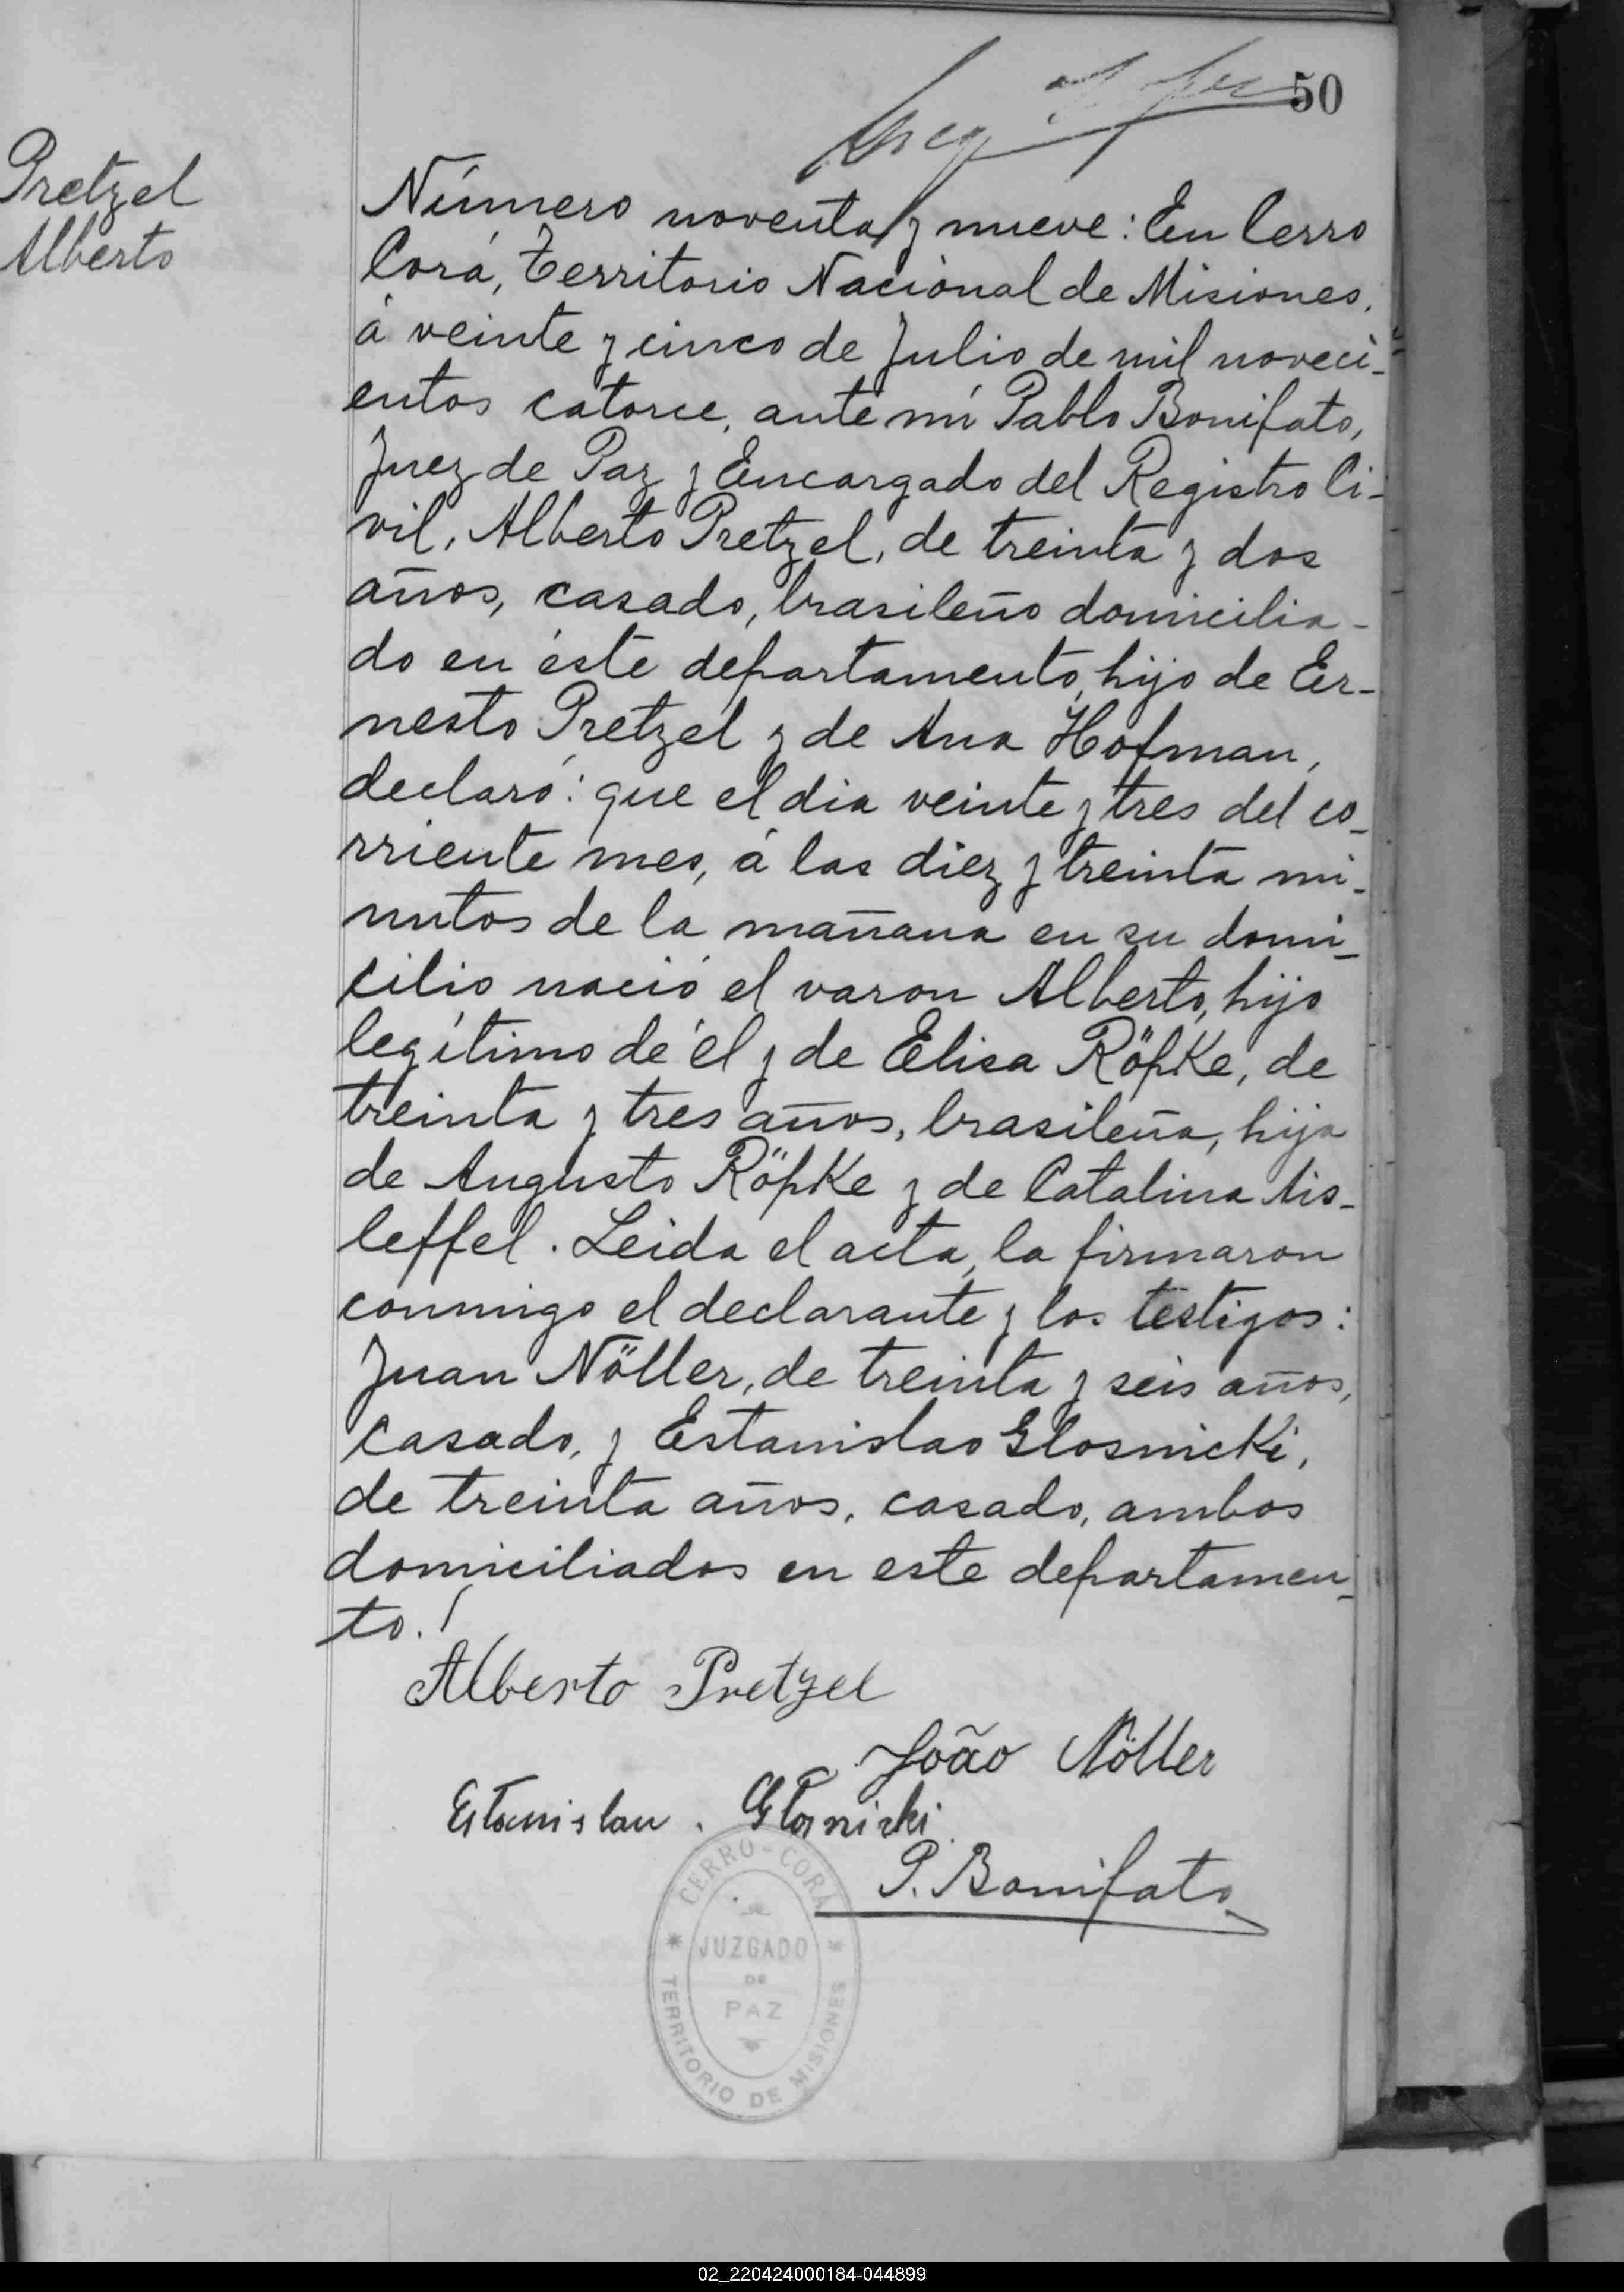 50
Pretzel
Alberto
Número noventa y nueve: En Cerro
Corá, Territorio Nacional de Misiones,
á veinte y cinco de Julio de mil noveci-
entos catorce, ante mí Pablo Bonifato,
Juez de Paz y Encargado del Registro Ci-
vil, Alberto Pretzel, de treinta y dos
años, casado, brasileño domicilia-
do en éste departamento, hijo de Er-
nesto Pretzel y de Ana Hofman,
declaró: que el dia veinte y tres del co-
rriente mes, á las diez y treinta mi-
nutos de la mañana en su domi-
cilio nació el varon Alberto, hijo
legítimo de él y de Elisa Röpke, de
treinta y tres años, brasileña, hija
de Augusto Röpke y de Catalina Ais-
leffel. Leida el acta, la firmaron
conmigo el declarante y los testigos:
Juan Nöller, de treinta y seis años,
casado, y Estanislao Glosnicki,
de treinta años, casado, ambos
domiciliados en este departamen-
to.
Alberto Pretzel
João Nöller
Estanislau.
P. Bonifato
CERRO-CORÁ
JUZGADO
DE
PAZ
TERRITORIO DE MISIONES
02_220424000184-044899